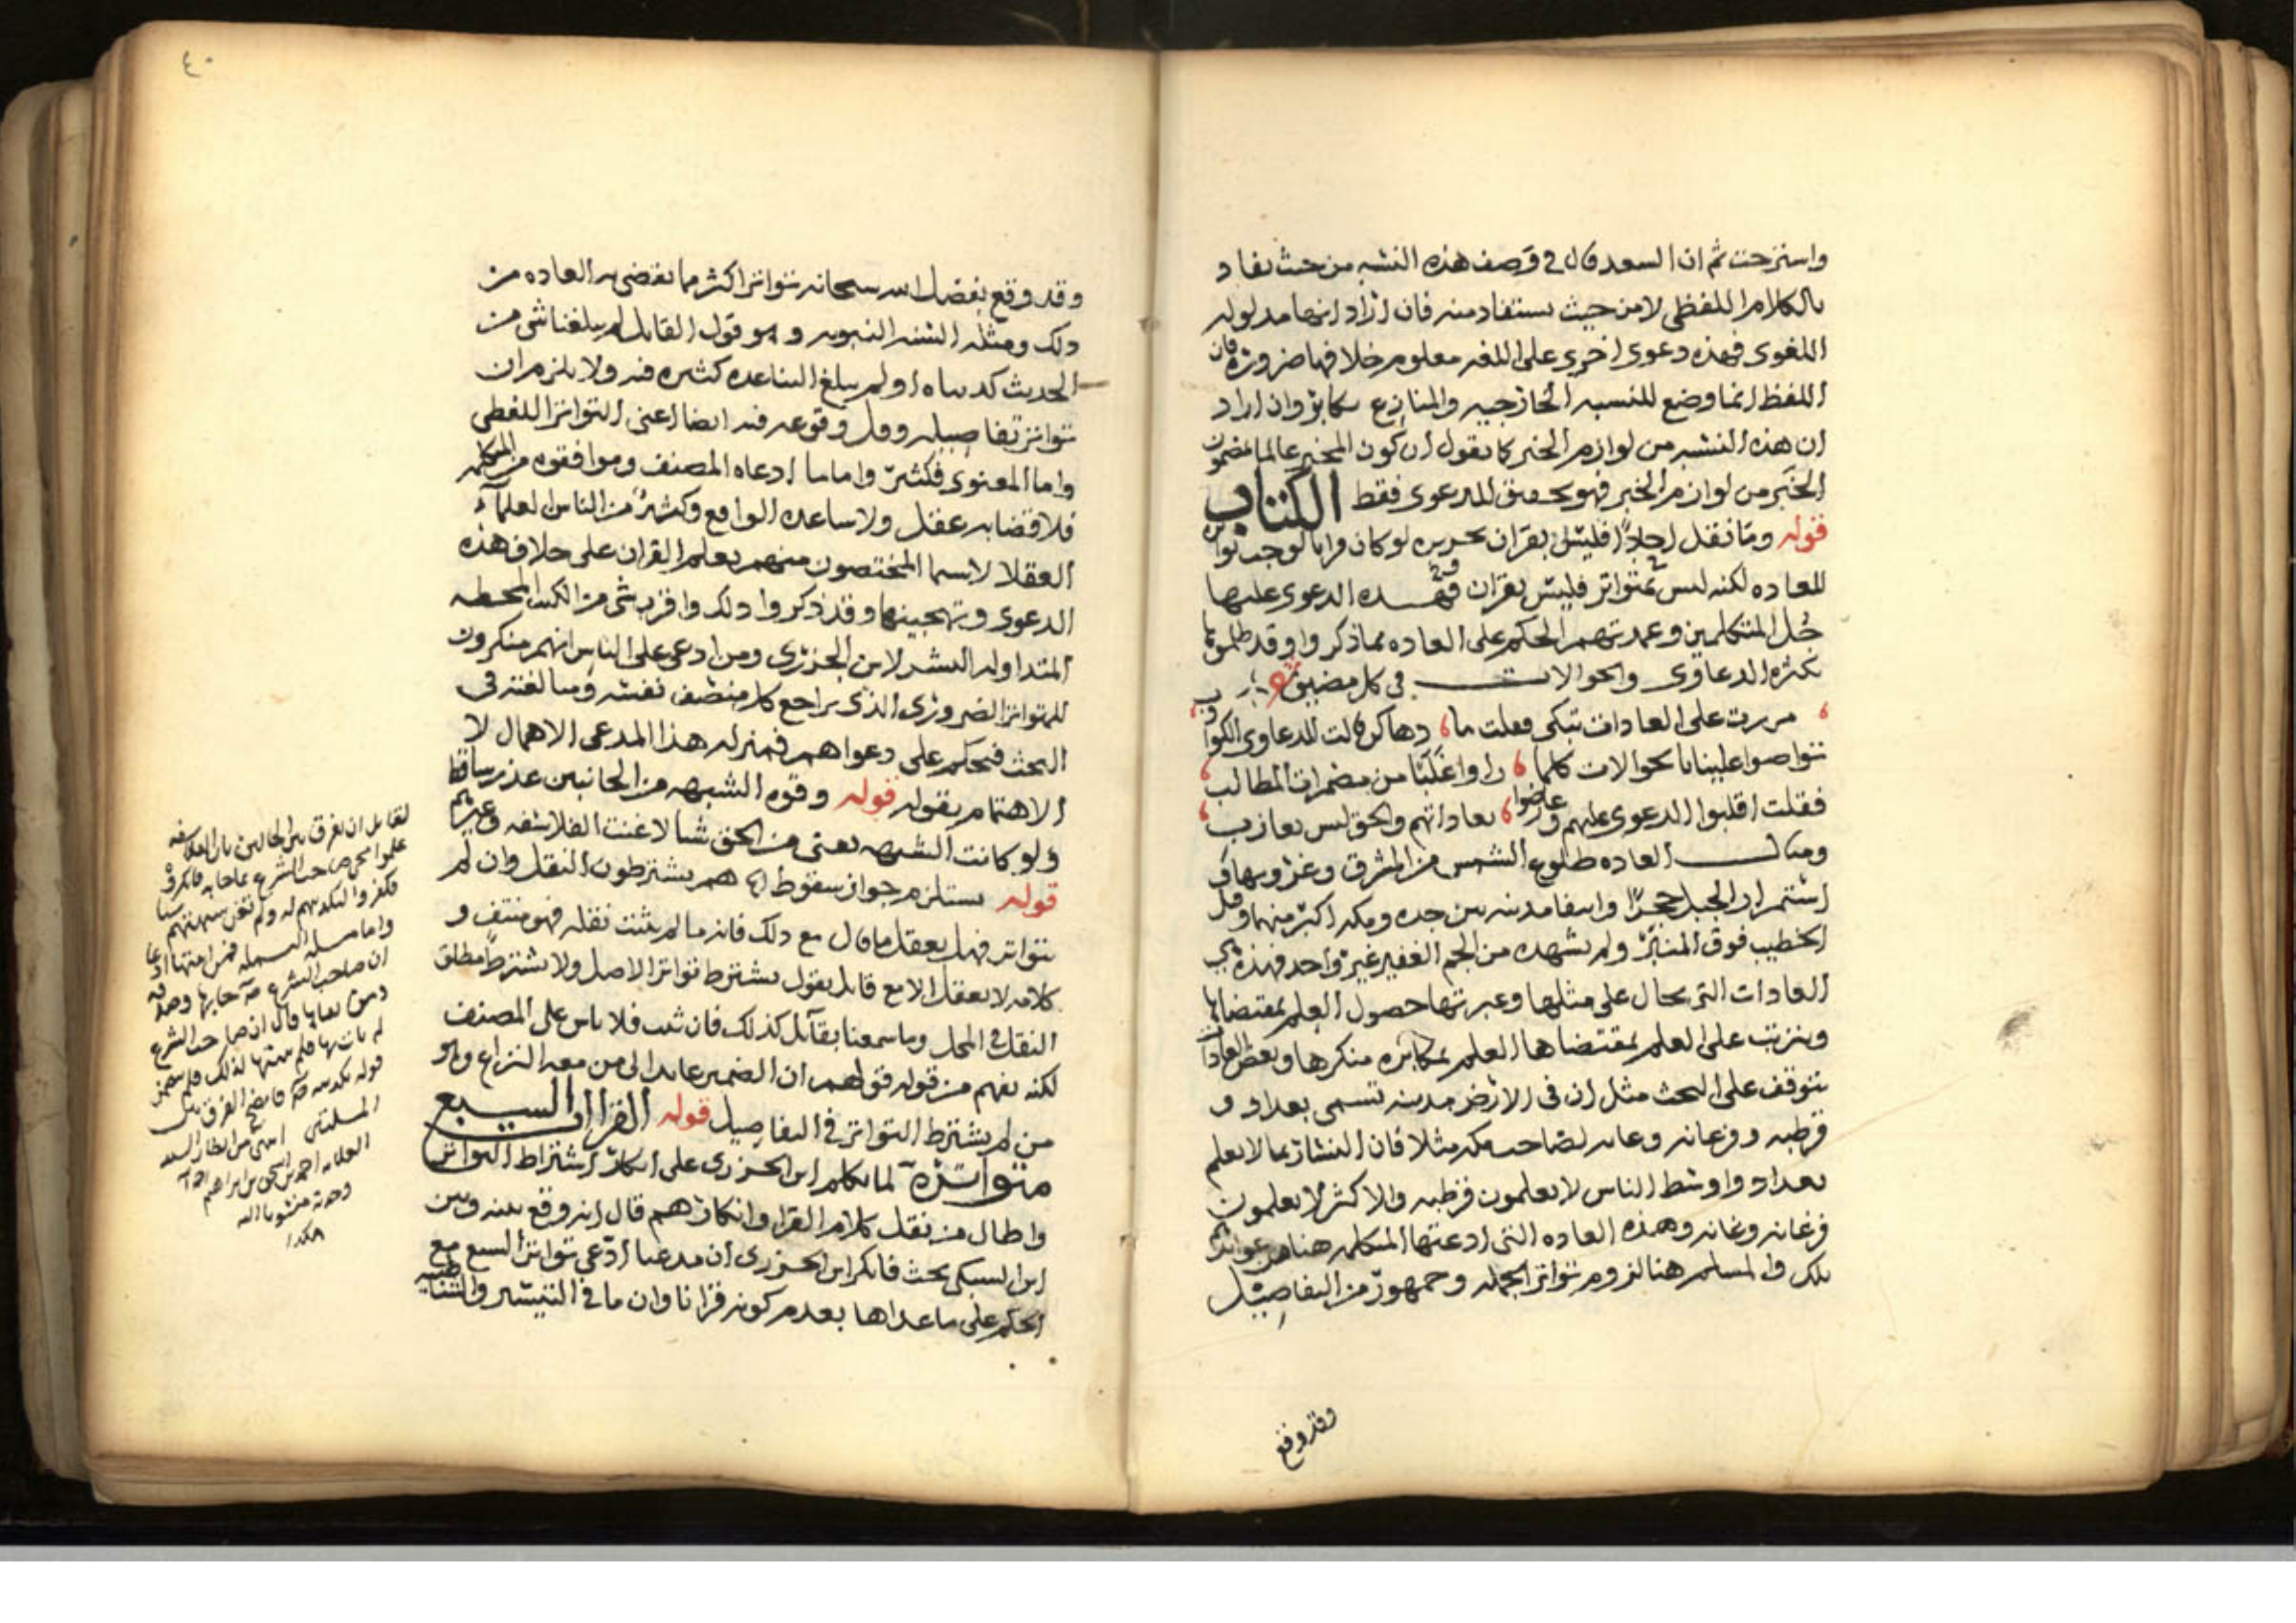 واسترحت ثم ان السعد قال في وصف هذه النسبه من حيث تفاد
بالكلام اللفظي لا من حيث يستفاد منه فان اراد انها مدلوله
اللغوي فهذه دعوى اخرى على اللغه معلوم خلافها ضرورة فان
اللفظ انما وضع للنسبه الخارجيه والمنازع مكابر وان اراد
ان هذه النسبه من لوازم الخبر كما يقول ان كون المخبر عالما بمضمون
الخبر من لوازم الخبر فهو تحقيق للدعوى فقط الكتاب
قوله وما نقل احادا فليس بقران تحريره لو كان قرانا لوجب تواتره
للعاده لكنه ليس بمتواتر فليس بقران فهذه الدعوى عليها
جل المتكلمين وعمدتهم الحكم على العاده مما ذكروا وقد ظلموها
بكثرة الدعاوى والحوالات في كل مضيق
مررت على العادات تبكي فقلت ما دهاكن قالت للدعاوى الكواذب
تواصوا علينا بالحوالات كلما راوا غلبا من مضمرات المطالب
فقلت اقلبوا الدعوى عليهم وعارضوا بعاداتهم والحق ليس بعازب
ومثال العاده طلوع الشمس من المشرق وغروبها و
استمرار الجبل حجرا وانتفا مدينه بين جده ومكه اكبر منهما وقتل
الخطيب فوق المنبر ولم يشهده من الجم الغفير غير واحد فهذه هي
العادات التي يحال على مثلها وعبرتها حصول العلم بمقتضاها
ويترتب على العلم بمقتضاها العلم بمكابره منكرها وبعض العادات
تتوقف على البحث مثل ان في الارض مدينه تسمى بغداد و
قرطبه وفرغانه وغانه لصاحب مكه مثلا فان النشاز بها لا يعلم
بغداد واوسط الناس لا يعلمون قرطبه والاكثر لا يعلمون
فرغانه وغانه وهذه العاده التي ادعتها المتكلمه هنا هي
تلك والمسلم هنا لزوم تواتر الجمله وجمهور من التفاصيل
وقد وقع
٤٠
وقد وقع بفضل الله سبحانه تواترا اكثر مما تقضي به العاده من
ذلك ومثله السنه النبويه وهو قول القايل لم يبلغنا شي من
الحديث كذبناه اولم يبلغ التباعده كثيره فيه ولا يلزم ان
تتواتر تفاصيله وقل وقوعه فيه ايضا اعني التواتر اللفظي
واما المعنوي فكثير واما ما ادعاه المصنف وموافقوه من المتكلمه
فلا قضا به عقل ولا ساعده الواقع وكثير من الناس العلمآء
العقلا لاسيما المختصون منهم بعلم القران على خلاف هذه
الدعوى وتهجينها وقد ذكروا ذلك واقرب شي من الكتب المحيطه
المتداوله النشر لابن الجزري ومن ادعى على الناس انهم منكرون
للتواتر الضروري الذي يراجع كل منصف نفسه ومبالغته في
البحث فيحكم على دعواهم فمنزله هذا المدعي الاهمال لا
الاهتمام بقوله قوله وقوه الشبهه من الجانبين عذر ساقط
ولو كانت الشبهه تعني من الحق شيا لاغنت الفلاسفه وغيرهم
قوله يستلزم جواز سقوط الخ هم يشترطون النقل وان لم
يتواتر فهل يعقل ما قال مع ذلك فانه ما لم يثبت نقله فهو منتف و
كلامه لا يعقل الا مع قايل يقول يشترط تواتر الاصل ولا يشترط مطلق
النقل في المحل وما سمعنا بقآيل كذلك فان ثبت فلا باس على المصنف
لكنه يفهم من قوله قولهم ان الضمير عايد الى من معه النزاع وهو
من لم يشترط التواتر في التفاصيل قوله القراات السبع
متواتره لما تكلم ابن الجزري على انكار اشتراط التواتر
واطال من نقل كلام القراء وانكارهم قال انه وقع بينه وبين
ابن السبكي بحث فانكر ابن الجزري ان مدعيا ادعى تواتر السبع مع
الحكم على ما عداها بعدم كونه قرانا وان ما في التيسير والشاطبيه
لقايل ان يفرق بين الحالين بان الفلاسفه
ان صاحب الشرع
العلامه احمد بن
هكذا